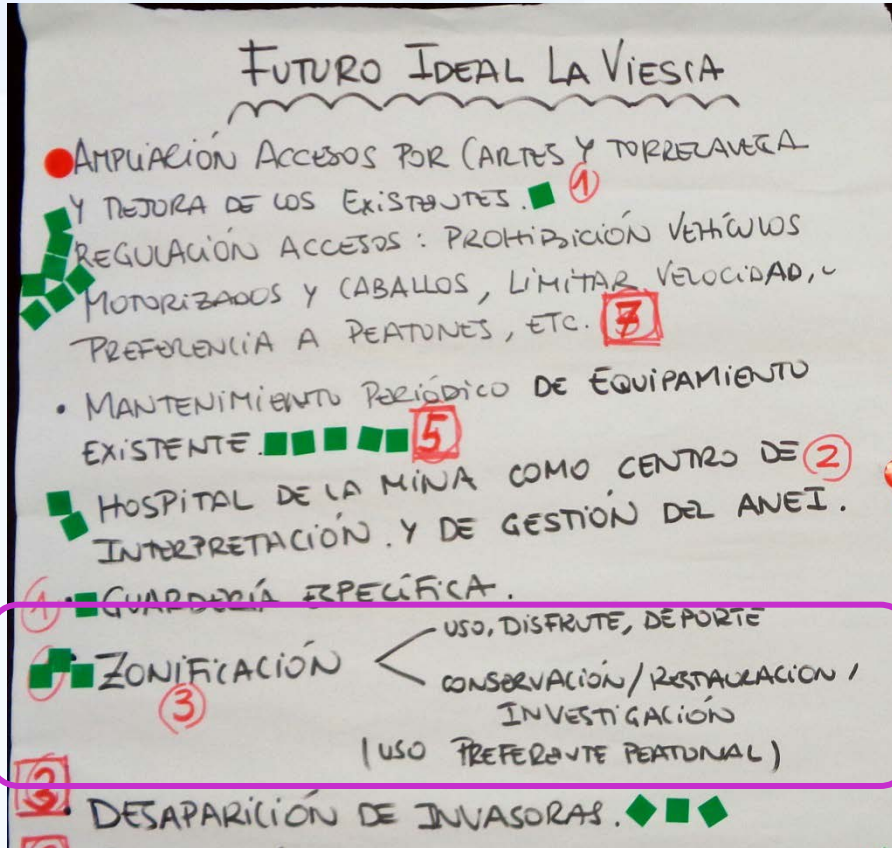 FUTURO IDEAL LA VIESCA
AMPLIACIÓN ACCESOS POR CARTES Y TORRELAVEGA
Y MEJORA DE LOS EXISTENTES. 1
REGULACIÓN ACCESOS: PROHIBICIÓN VEHÍCULOS
MOTORIZADOS Y CABALLOS, LIMITAR VELOCIDAD,
PREFERENCIA A PEATONES, ETC. 7
• MANTENIMIENTO PERIÓDICO DE EQUIPAMIENTO
EXISTENTE. 5
HOSPITAL DE LA MINA COMO CENTRO DE 2
INTERPRETACIÓN Y DE GESTIÓN DEL ANEI.
1 • GUARDERÍA ESPECÍFICA.
ZONIFICACIÓN
3
USO, DISFRUTE, DEPORTE
CONSERVACIÓN/RESTAURACION/
INVESTIGACIÓN
(USO PREFERENTE PEATONAL)
• DESAPARICIÓN DE INVASORAS.